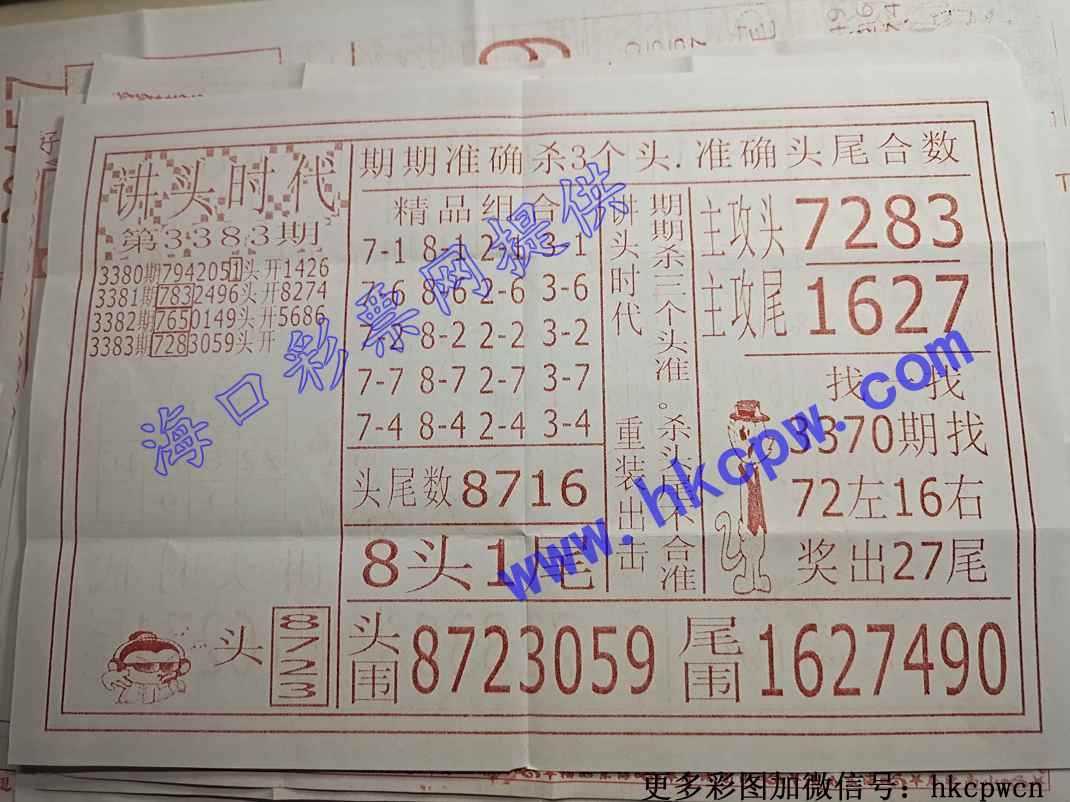 期期准确杀3个头.准确头尾合数
讲头时代
第3383期
3380期7942051头开1426
3381期7832496头开8274
3382期7650149头开5686
3383期7283059头开
精品组合
7-1 8-1 2-1 3-1
7-6 8-6 2-6 3-6
7-2 8-2 2-2 3-2
7-7 8-7 2-7 3-7
7-4 8-4 2-4 3-4
头尾数8716
8头1尾
讲头时代 重装出击
期期杀三个头准。杀头尾不合准
主攻头7283
主攻尾1627
找 找
3370期找
72左16右
奖出27尾
头
8723
头围8723059
尾围1627490
海口彩票网提供
www.hkcpw.com
更多彩图加微信号：hkcpwcn